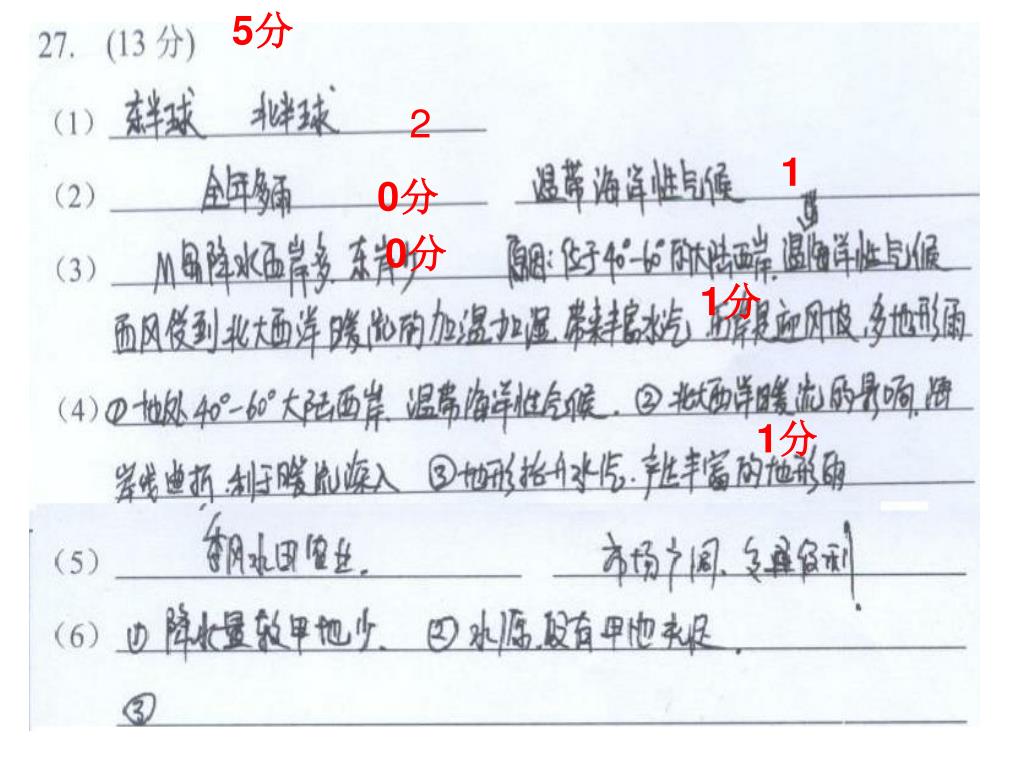 27. (13 分) 5分
(1) 东半球 北半球 2
(2) 全年多雨 0分 温带海洋性气候 1
(3) M岛降水西岸多,东岸少 0分 原因:位于40°-60°的大陆西岸,温海洋性气候
西风受到北大西洋暖流的加温加湿,带来丰富水汽 1分 西岸是迎风坡,多地形雨
(4) ①地处40°-60°大陆西岸,温带海洋性气候. ②北大西洋暖流的影响,海
岸线曲折,利于暖流深入 ③地形抬升水汽,产生丰富的地形雨 1分
(5) 季风水田农业. 市场广阔,交通便利
(6) ①降水量较甲地少. ②水源没有甲地充足.
③